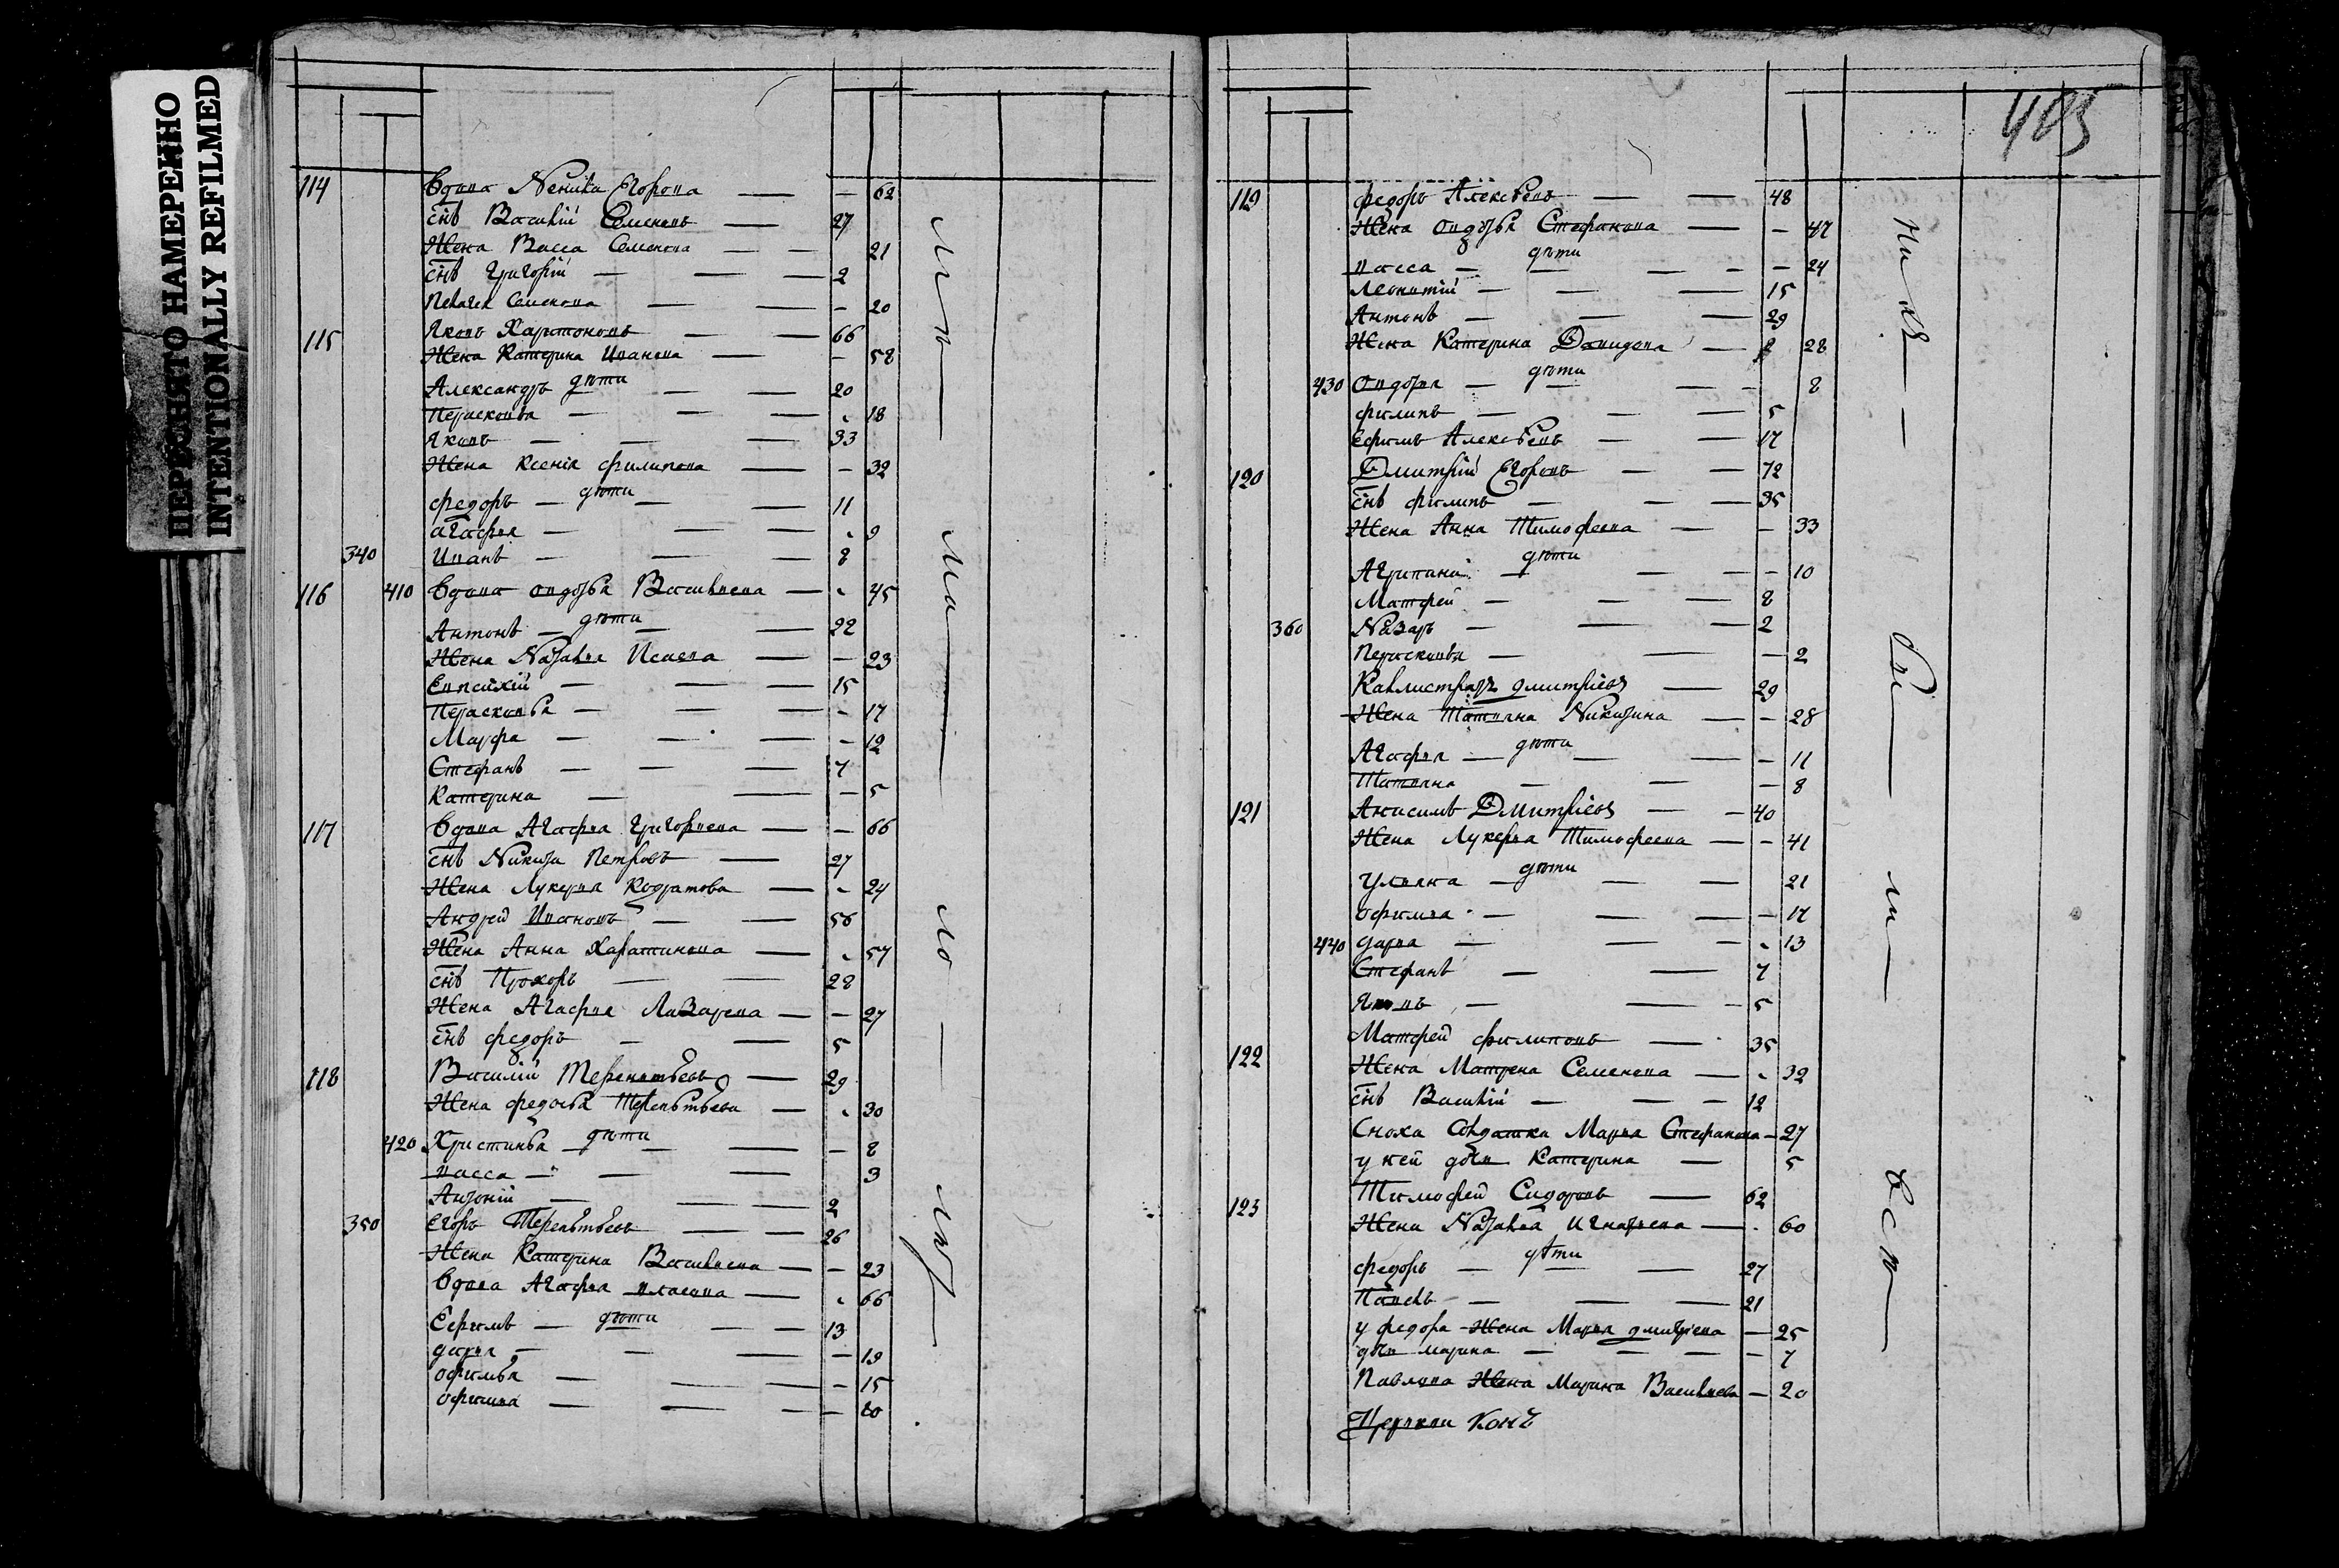 ПЕРЕСНЯТО НАМЕРЕННО
INTENTIONALLY REFILMED
403
114 Вдова Ненила Егорова — — 62
снъ Василий Семеновъ — 27
Жена Васса Семенова — — 21
снъ Григорий — — — 2
Пелагея Семенова — — — 20
115 Яковъ Харитоновъ — — 66
Жена Катерина Иванова — — 58
дѣти
Александръ — — — 20
Перасковья — — — 18
Яковъ — — — 33
Жена Ксения Филипова — — 32
дѣти
Федоръ — — — 11
Агафья — — — 9
340 Иванъ — — — 8
116 410 Вдова Авдотья Васильева — 45
дѣти
Антонъ — — — 22
Жена Наталья Исаева — — 23
Евсейкий — — — 15
Перасковья — — — 17
Марфа — — — 12
Стефанъ — — — 7
Катерина — — — 5
117 Вдова Агафья Григорьева — — 66
снъ Никита Петровъ — 27
Жена Лукерья Кодратова — 24
Андрей Ивановъ — — 56
Жена Анна Харатинова — 57
снъ Прохоръ — — 28
Жена Агафья Лазарева — — 27
снъ Федоръ — — 5
118 Василий Терентьевъ — 29
Жена Федосья Терентьева — 30
дѣти
420 Христинья — — — 8
Васса — — — 3
Антоний — — — 2
350 Егоръ Терентьевъ — — 26
Жена Катерина Васильева — — 23
Вдова Агафья Власова — 66
дѣти
Ефимъ — — — 13
Дарья — — — 19
Офимья — — — 15
Офимья — — — 10
119 Федоръ Алексѣевъ — — 48
Жена Авдотья Стефанова — — 47
дѣти
Васса — — — 24
Леонтий — — — 15
Антонъ — — — 29
Жена Катерина Давидова — 28
дѣти
430 Авдотья — — — 8
Филипъ — — — 5
Ефимъ Алексѣевъ — — 17
120 Дмитрий Егоровъ — — 72
снъ Филипъ — — — 35
Жена Анна Тимофеева — — 33
дѣти
Агрипана — — — 10
Матфей — — — 8
360 Назаръ — — — 2
Перасковья — — — 2
Калистратъ Дмитриевъ — 29
Жена Татьяна Никитина — — 28
дѣти
Агафья — — — 11
Татьяна — — — 8
121 Анисимъ Дмитриевъ — — 40
Жена Лукерья Тимофеева — — 41
дѣти
Ульяна — — — 21
Офимья — — — 17
440 Дарья — — — 13
Стефанъ — — 7
Яковъ — — 5
Матфей Филиповъ — 35
122 Жена Матрена Семенова — 32
снъ Василий — — — 12
Сноха Солдатка Марья Стефанова — 27
у ней дочь Катерина — 5
123 Тимофей Сидоровъ — 62
Жена Наталья Игнатьева — 60
дѣти
Федоръ — — — 27
Павелъ — — — 21
у Федора Жена Марья Дмитриева — 25
дочь Марина — — — 7
Павлова Жена Марина Васильева — 20